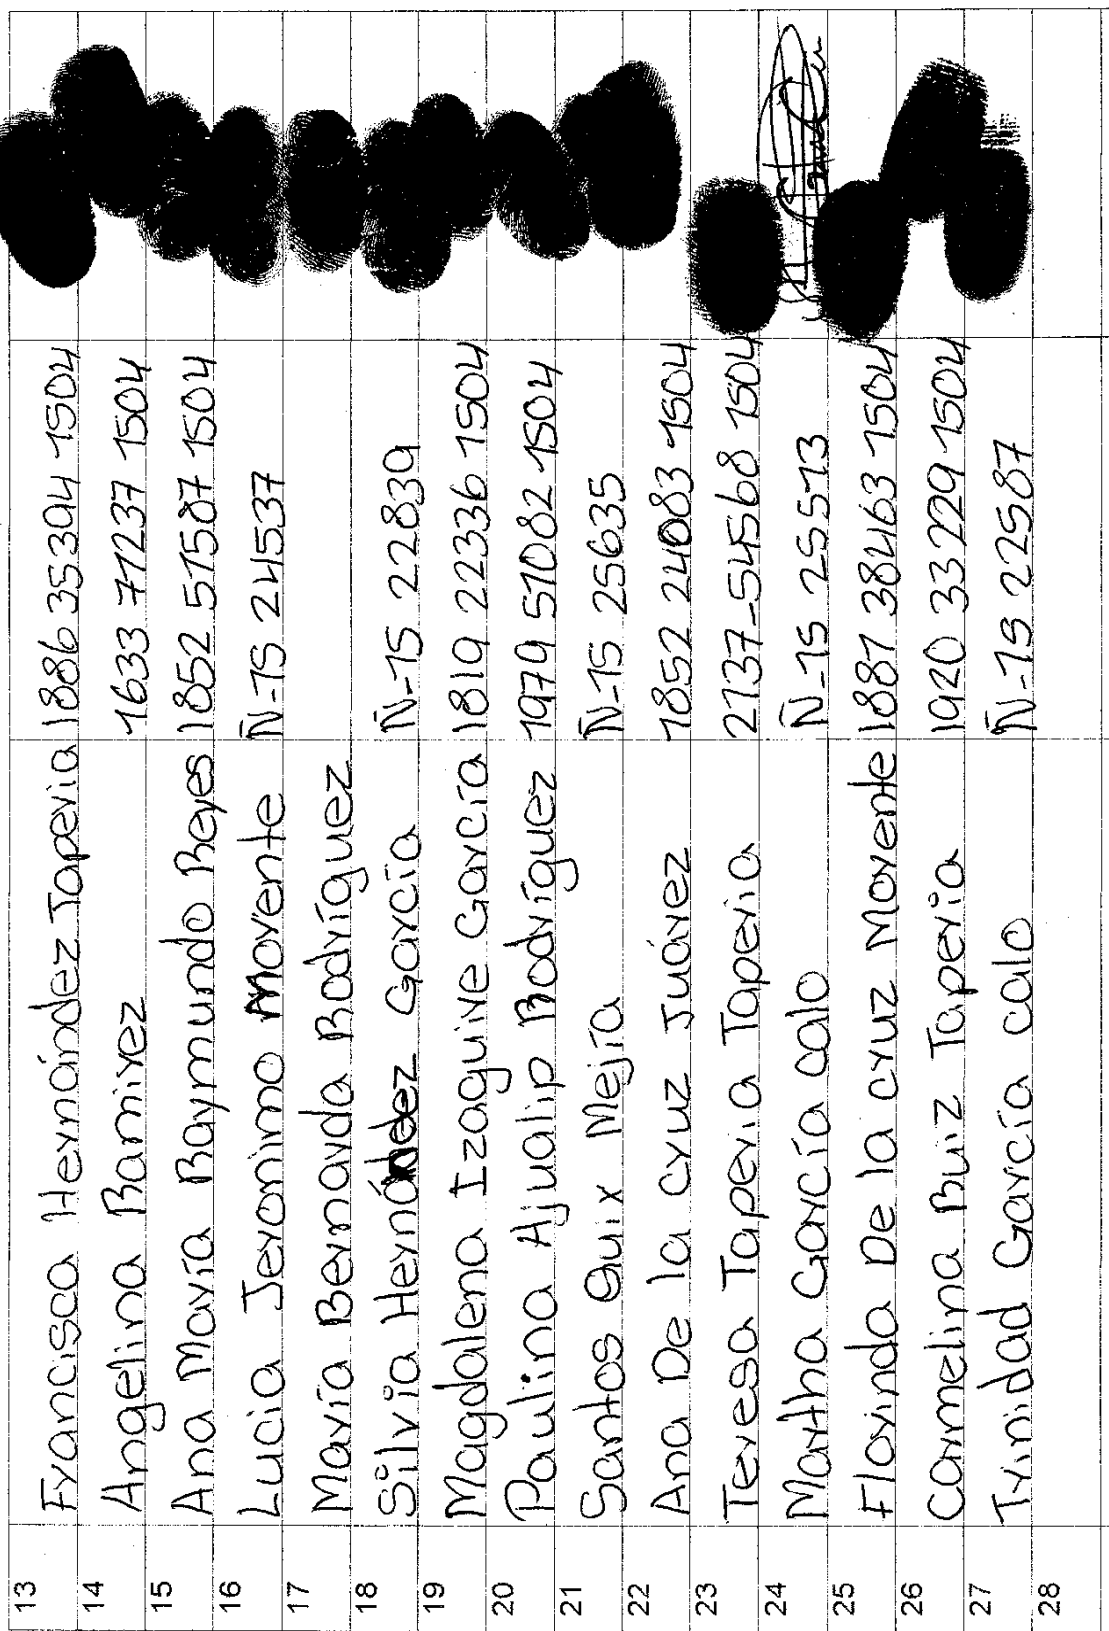 13 Francisca Hernández Taperia 1886 35394 1504
14 Angelina Ramirez 1633 71237 1504
15 Ana María Raymundo Reyes 1852 51587 1504
16 Lucia Jeronimo Morente Ñ-15 24537
17 María Bernarda Rodríguez
18 Silvia Hernández García Ñ-15 22839
19 Magdalena Izaguirre García 1819 22336 1504
20 Paulina Ajualip Rodríguez 1979 51082 1504
21 Santos Quix Mejía Ñ-15 25635
22 Ana De la cruz Juárez 1852 24083 1504
23 Teresa Taperia Taperia 2137-54568 1504
24 Martha García calo Ñ-15 25513
25 Florinda De la cruz Morente 1887 38463 1504
26 Carmelina Ruiz Taperia 1920 33229 1504
27 Trinidad García calo Ñ-15 22587
28